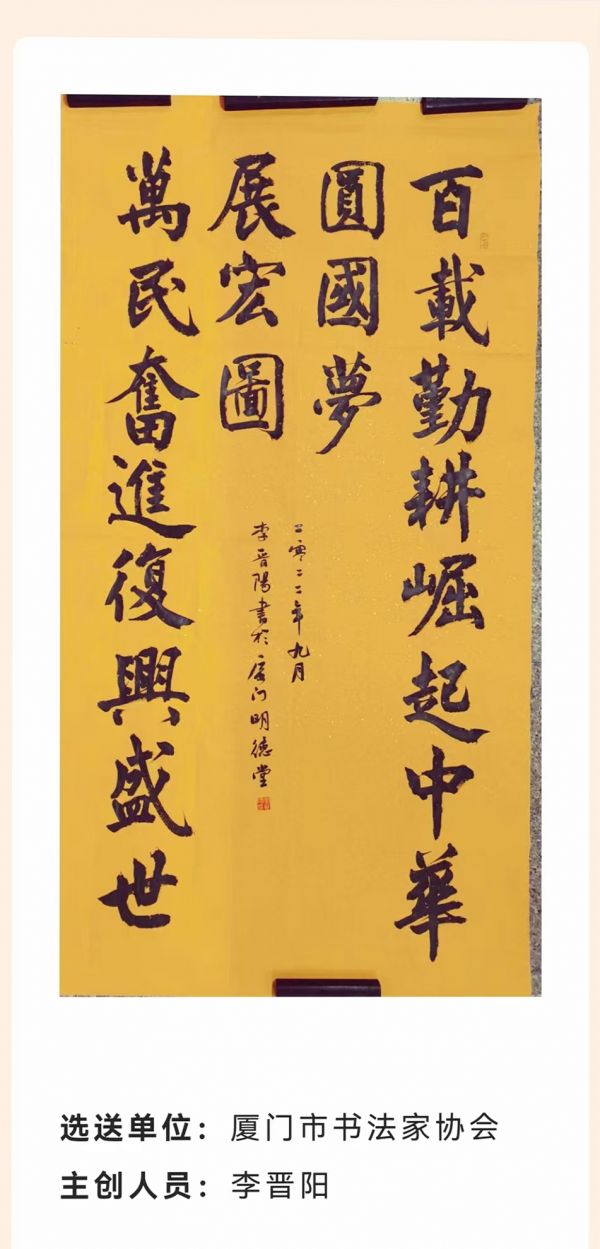 百載勤耕崛起中華
圓國夢
萬民奮進復興盛世
展宏圖
二零二二年九月
李晉陽書於厦门明德堂
选送单位：厦门市书法家协会
主创人员：李晋阳